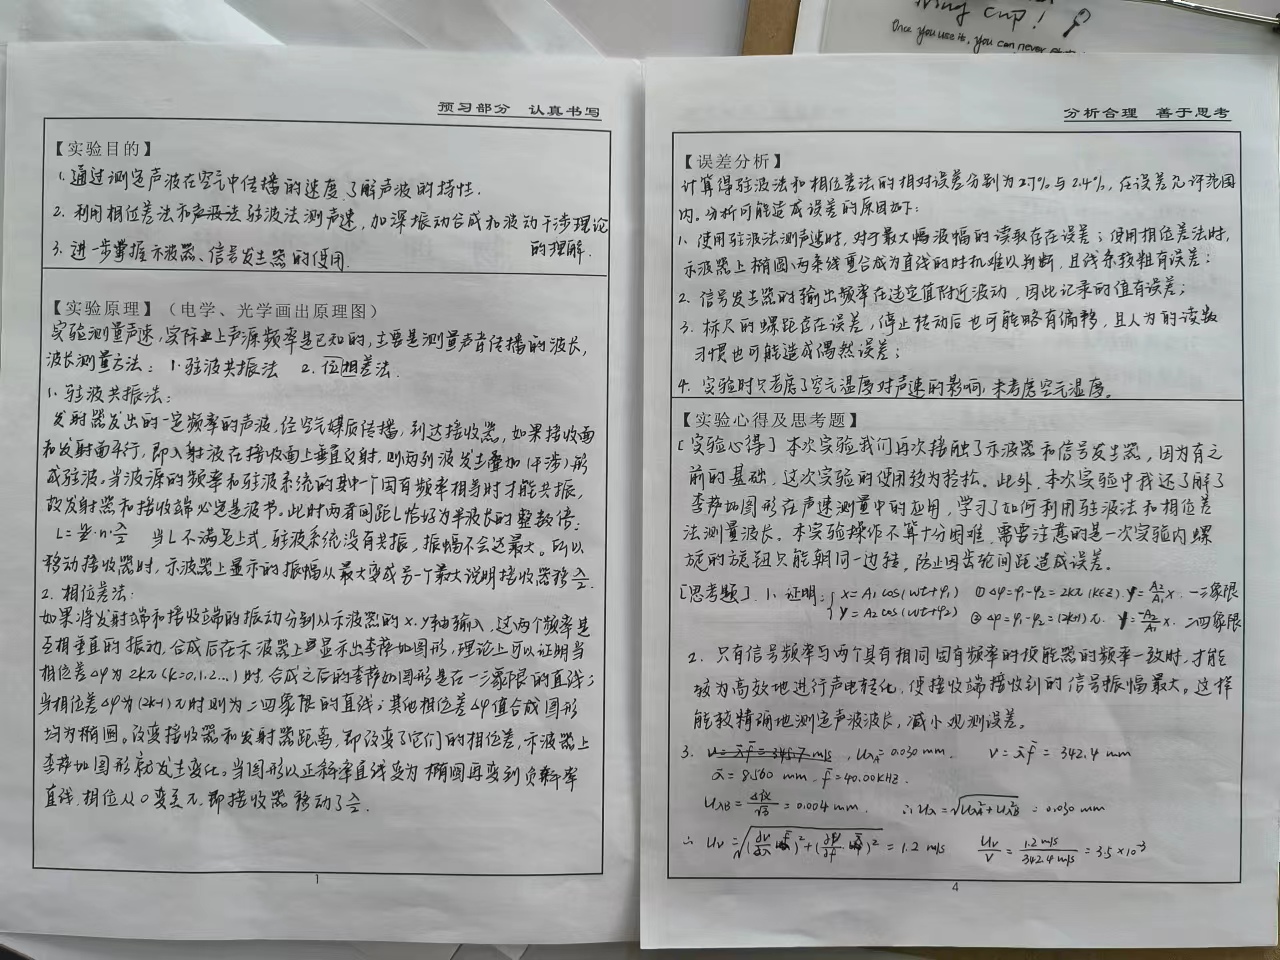 cup!
Once you use it, you can never
预习部分 认真书写
【实验目的】
1.通过测定声波在空气中传播的速度,了解声波的特性.
2. 利用相位差法和驻波法测声速,加深振动合成和波动干涉理论
的理解.
3. 进一步掌握示波器、信号发生器的使用.
【实验原理】(电学、光学画出原理图)
实验测量声速,实际上声源频率是已知的,主要是测量声音传播的波长,
波长测量方法: 1.驻波共振法 2.位相差法.
1.驻波共振法:
发射器发出的一定频率的声波,经空气媒质传播,到达接收器,如果接收面
和发射面平行,即入射波在接收面上垂直反射,则两列波发生叠加(干涉)形
成驻波,当波源的频率和驻波系统的其中一个固有频率相等时才能共振,
故发射器和接收端必定是波节.此时两者间距L恰好为半波长的整数倍:
当L不满足上式,驻波系统没有共振,振幅不会达最大。所以
移动接收器时,示波器上显示的振幅从最大变成另一个最大说明接收器移λ/2.
2.相位差法:
如果将发射端和接收端的振动分别从示波器的x.y轴输入,这两个频率是
互相垂直的振动,合成后在示波器上显示出李萨如图形,理论上可以证明当
相位差Δφ为2kπ(k=0,1,2...)时,合成之后的李萨如图形是在一三象限的直线;
当相位差Δφ为(2k-1)π时则为二四象限的直线;其他相位差Δφ值合成图形
均为椭圆。改变接收器和发射器距离,即改变了它们的相位差,示波器上
李萨如图形就发生变化。当图形以正斜率直线变为椭圆再变到负斜率
直线,相位从0变至π,即接收器移动了λ/2.
1
分析合理 善于思考
【误差分析】
计算得驻波法和相位差法的相对误差分别为2.7%与2.4%,在误差允许范围
内。分析可能造成误差的原因如下:
1. 使用驻波法测声速时,对于最大幅波幅的读取存在误差;使用相位差法时,
示波器上椭圆、两条线重合成为直线的时机难以判断,且线条较粗有误差;
2. 信号发生器的输出频率在选定值附近波动,因此记录的值有误差;
3. 标尺的螺距存在误差,停止转动后也可能略有偏移,且人为的读数
习惯也可能造成偶然误差;
4. 实验时只考虑了空气温度对声速的影响,未考虑空气湿度。
【实验心得及思考题】
[实验心得] 本次实验我们再次接触了示波器和信号发生器,因为有之
前的基础,这次实验的使用较为轻松。此外,本次实验中我还了解了
李萨如图形在声速测量中的应用,学习了如何利用驻波法和相位差
法测量波长。本实验操作不算十分困难,需要注意的是一次实验内螺
旋的旋钮只能朝同一边转,防止因齿轮间距造成误差。
[思考题] 1. 证明: x=A₁cos(ωt+φ₁) ① Δφ=φ₁-φ₂=2kπ(k∈Z). y=A₂/A₁x. 一三象限
y=A₂cos(ωt+φ₂) ② Δφ=φ₁-φ₂=(2k+1)π. y=-A₂/A₁x. 二四象限
2. 只有信号频率与两个具有相同固有频率的换能器的频率一致时,才能
较为高效地进行声电转化,使接收端接收到的信号振幅最大。这样
能较精确地测定声波波长,减小观测误差。
3. , UλA=0.030 mm. v=λ̄f̄=342.4 m/s
λ̄=8.560 mm. f̄=40.00KHZ.
UλB=Δ仪/√3=0.004 mm. ∴Uλ=√(UλA²+UλB²)=0.030 mm
=1.2 m/s Uv/v=1.2 m/s/342.4 m/s=3.5×10⁻³
4